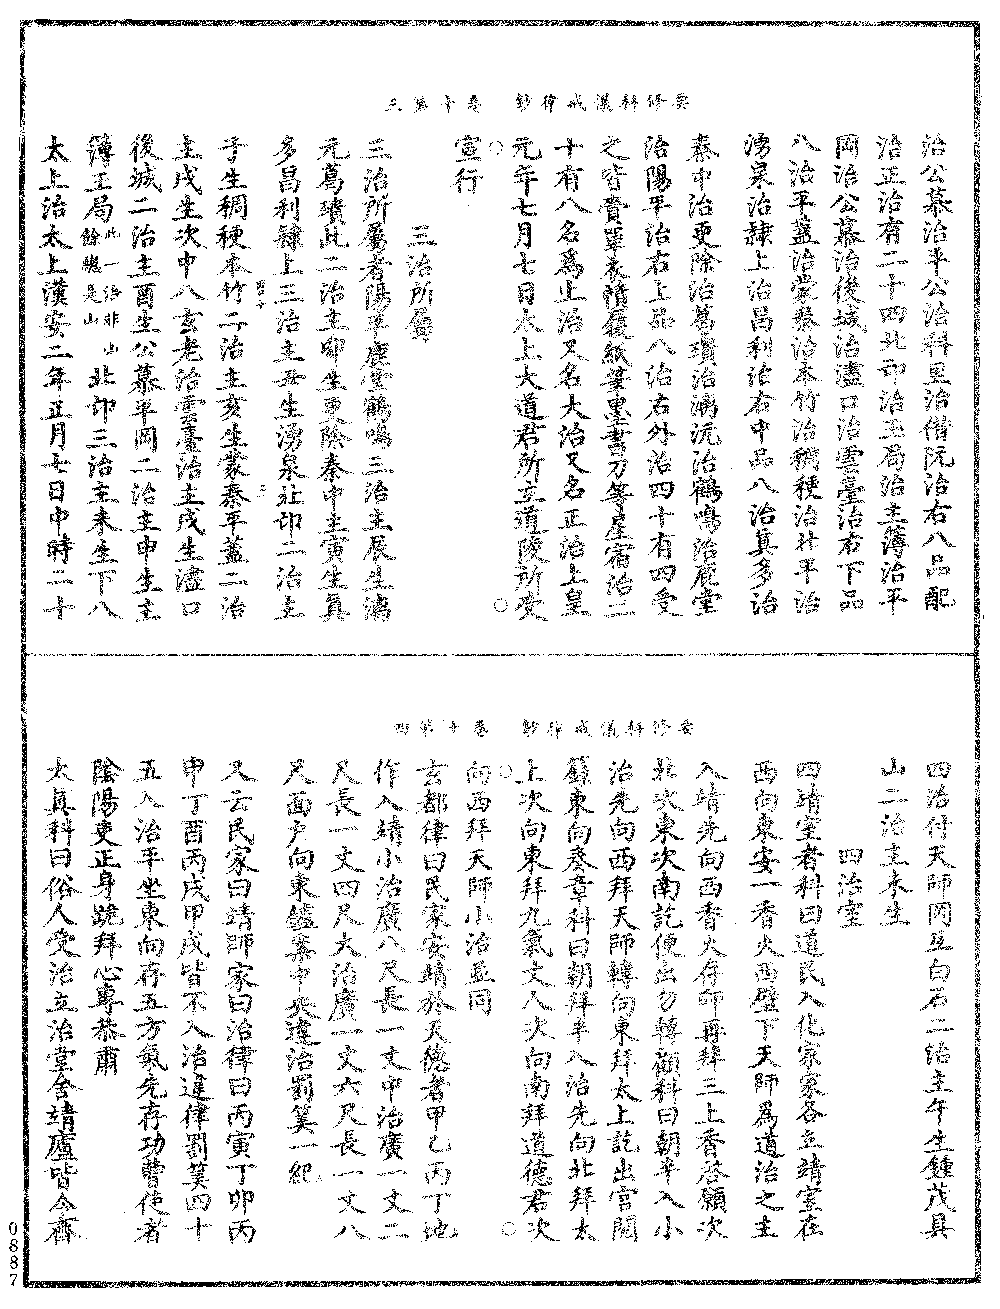 要修科儀戒律鈔　卷十第三
治公慕治平公治科里治借阮治右八品配
治正治有二十四北邙治玉局治主簿治平
岡治公慕治後城治濜口治雲臺治右下品
八治平蓋治蒙秦治本竹治稠稉治北平治
湧泉治隸上治昌利治右中品八治真多治
秦中治更除治葛璝治漓沅治鶴鳴治鹿堂
治陽平治右上品八治右外治四十有四受
之皆賫單衣幘履紙筆墨書刀等星宿治二
十有八名為止治又名大治又名正治上皇
元年七月七日太上大道君所立道陵所受
宣行
三治所屬
三治所屬者陽平鹿堂鶴鳴三治主辰生漓
元葛璝此二治主卯生更除秦中主寅生真
多昌利隸上三治主丑生湧泉北邙二治主
子生稠稉本竹二治主亥生蒙秦平蓋二治
主戌生次中八玄老治雲臺治主戌生濜口
後城二治主酉生公慕平岡二治主申生主
簿玉局此一治非山餘總是山北邙三治主未生下八
太上治太上漢安二年正月七日中時二十
要修科儀戒律鈔　卷十第四
四治付天師岡互白石二治主午生鍾茂具
山二治主未生
四治室
四靖室者科曰道民入化家家各立靖室在
西向東安一香火西壁下天師為道治之主
入靖先向西香火存師再拜三上香啓願次
北次東次南訖便出勿轉顧科曰朝平入小
治先向西拜天師轉向東拜太上訖出官開
籙東向奏章科曰朝拜平入治先向北拜太
上次向東拜九氣丈人次向南拜道德君次
向西拜天師小治並同
玄都律曰民家安靖於天德者甲乙丙丁地
作入靖小治廣八尺長一丈中治廣一丈二
尺長一丈四尺大治廣一丈六尺長一丈八
尺面戶向東鑪案中央違治罰筭一紀
又云民家曰靖師家曰治律曰丙寅丁卯丙
申丁酉丙戌甲戌皆不入治違律罰筭四十
五入治平坐東向存五方氣先存功曹使者
陰陽吏正身跪拜心專恭肅
太真科曰俗人受治立治堂舍靖廬皆令齋
0887